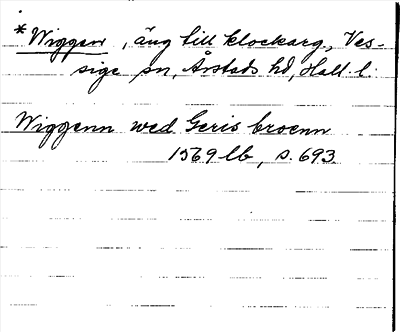 *Wiggen, äng till klockarg., Ves-
sige sn, Årstads hd, Hall. l.
Wiggenn wed Geris broenn
1569 lb, s. 693